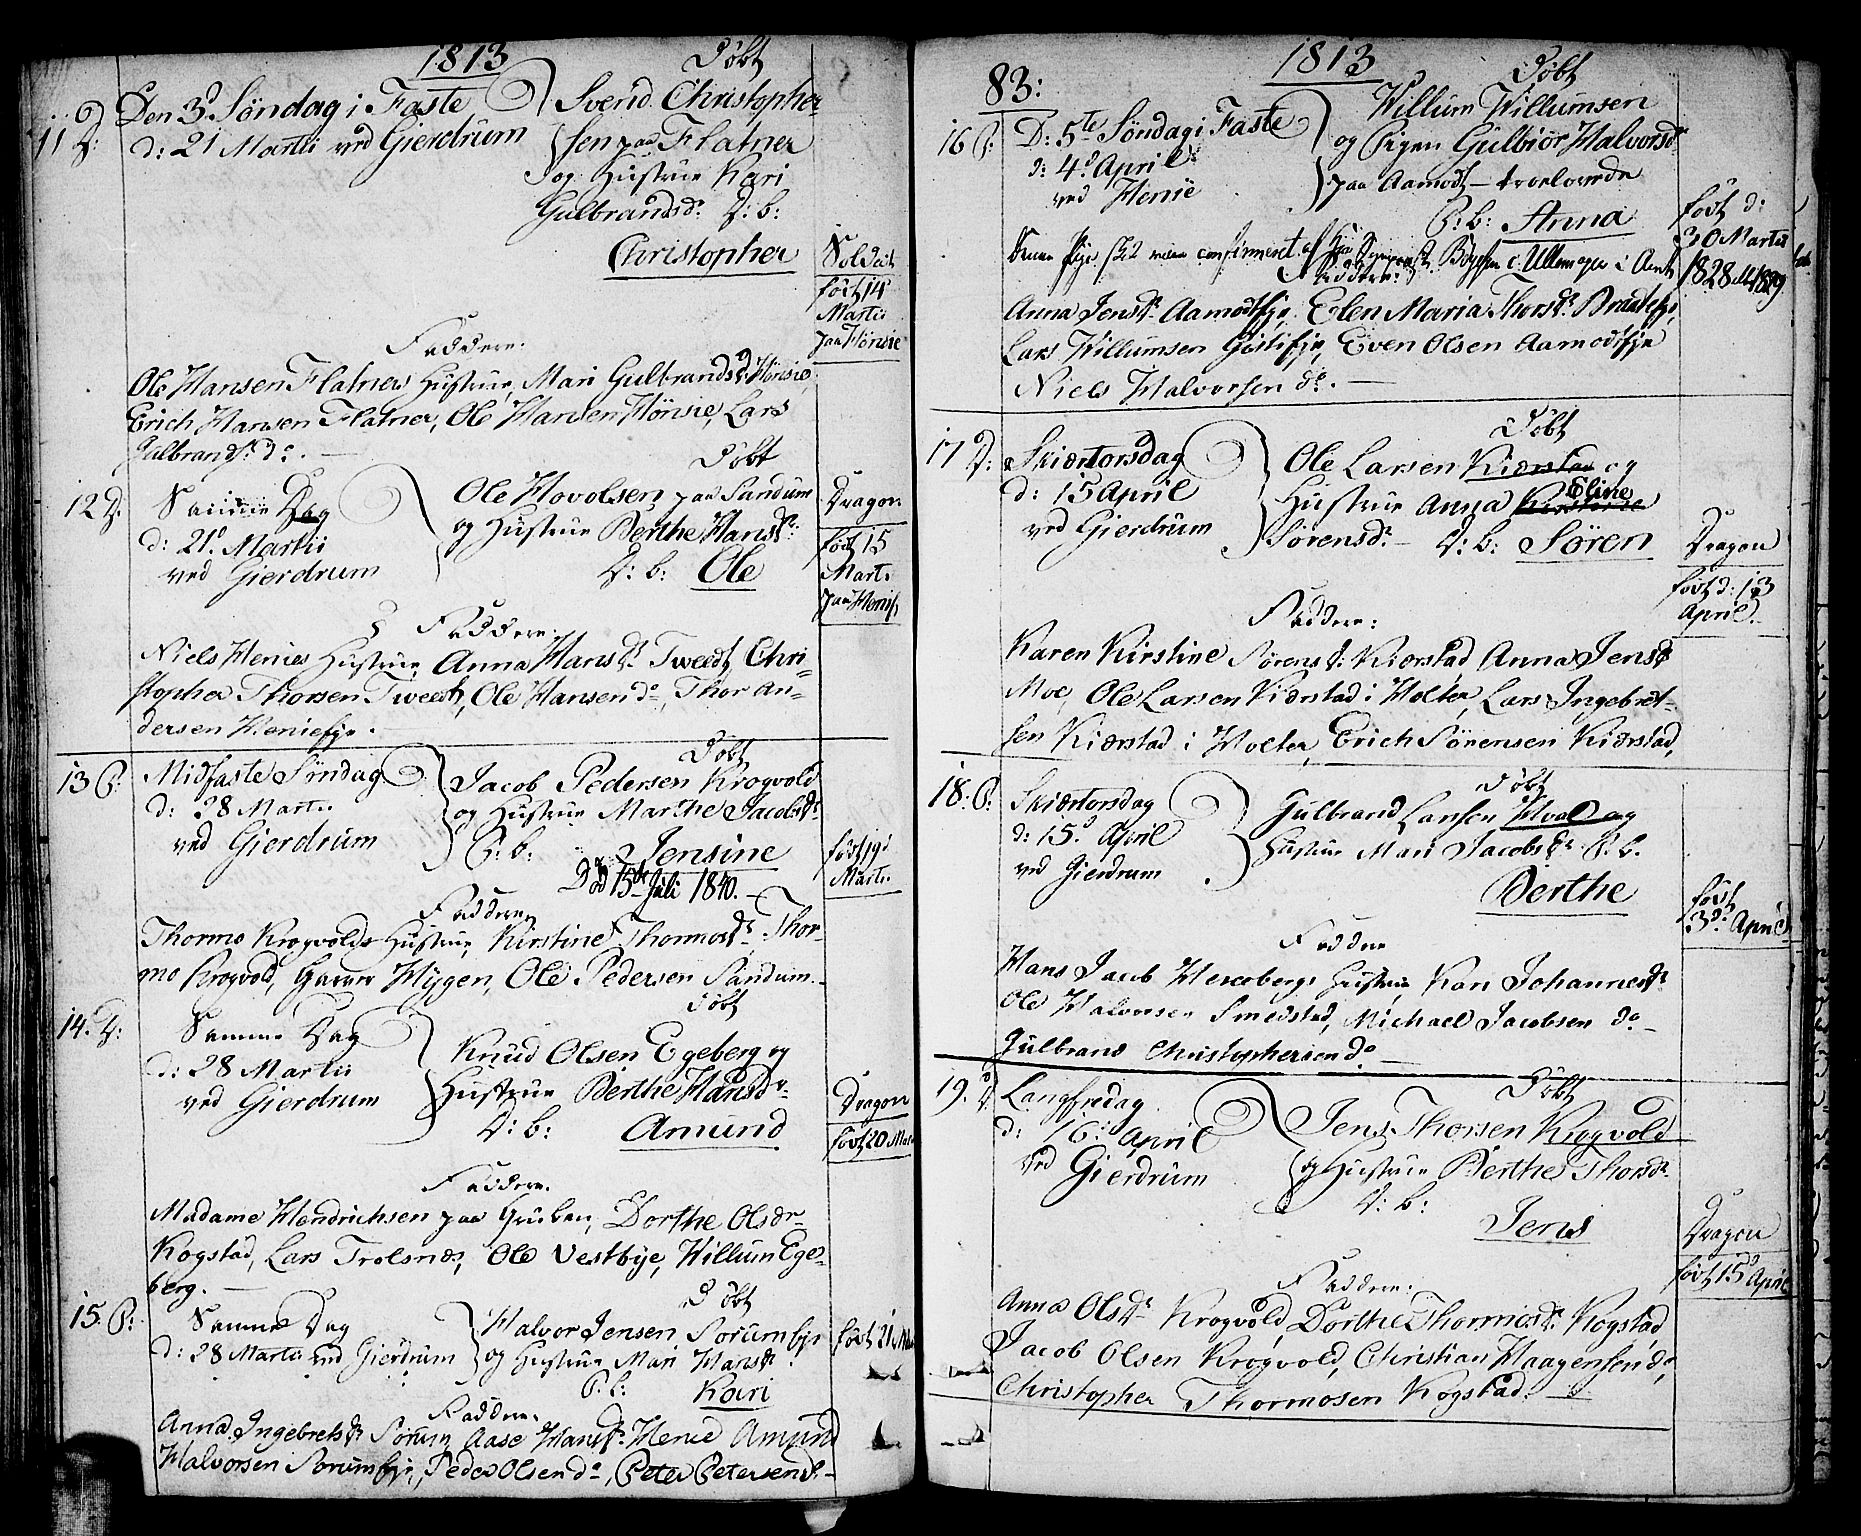 1813
Døbt
11 D: Den 3d Søndag i Faste
d: 21 Martii ved Gierdrum
Svend Christopher-
sen paa Flatner
og Hustrue Kari
Gulbrandsdr D: b:
Christopher
Soldat
født 14
Martii
paa Hønsie
Faddere:
Ole Hansen Flatners Hustrue, Mari Gulbrandsdr Hönsie,
Erich Hansen Flatner, Ole Hansen Hönsie, Lars
Gulbrands: do. —
Døbt
12 D: Samme Dag
d: 21d Martii
ved Gierdrum
Ole Hovolsen paa Sandum
og Hustrue Berthe Hansdr:
D: b: Ole
Dragon
født 15
Marti
paa Henie
Faddere:
Niels Henies Hustrue, Anna Hansdr Tweedt, Chri-
stopher Thorsen Tweedt, Ole Hansen do, Thor An-
dersen Henieeje.
Døbt
13 P: Midfaste Søndag
d: 28 Martii
ved Gierdrum
Jacob Pedersen Krogvold
og Hustrue Marthe Jacobsdr
P: b: Jensine
Død 15de Juli 1840. —
født 19d
Marti.
Faddere
Thormo Krogvolds Hustrue, Kirstine Thormosdr Thor-
mo Krogvold, Hygen, Ole Pedersen Sandum.
Døbt
14. D: Samme Dag
d: 28 Martii
ved Gierdrum
Knud Olsen Egeberg og
Hustrue Berthe Hansdr
D: b: Amund
Dragon
født 20 Mar
Faddere.
Madame Hendrichsen paa Gruben, Dorthe Olsdr
Kogstad, Lars Trolsnæs, Ole Vestbye, Willum Ege-
berg. —
Døbt
15. P: Samme Dag
d: 28 Martii ved Gierdrum
Halvor Jensen Sørum eje
og Hustrue Mari Hansdr
P. b: Kari
født 21 Mar
Faddere.
Anna Ingebretsdr Sørum, Aase Hansdr Henie Amund
Halvorsen Sørum eje, Peder Olsen do, Peter Petersen do —
83:
1813
Døbt
16 P: D: 5te Søndag i Faste
d: 4d April
ved Henie
Willum Willumsen
og Pigen Gulbiör Halvorsdr
paa Aamodt — troelovede
P: b: Anna
født d:
30 Martii
Denne Pige være confirmeret af i
1828
Faddere:
Anna Jensdr Aamodteje, Elen Maria Thorsdr
Lars Willumsen, Even Olsen Aamodteje
Niels Halvorsen do. —
Døbt
17 D: Skiærtorsdag
d: 15 April
ved Gierdrum
Ole Larsen Kiærstad og
Hustrue Anna Kirstine Eline
Sørensdr — D: b: Søren
Dragon
født d: 13
April.
Faddere:
Karen Kirstine Sørensdr: Kiærstad Anna Jensdr
Moe, Ole Larsen Kiærstad i Holter, Lars Ingebret-
sen Kiærstad i Holter, Erich Sørensen Kiærstad,
Døbt
18. P: Skiærtorsdag
d: 15d April
ved Gierdrum
Gulbrand Larsen Hval og
Hustrue Mari Jacobsdr P: b.
Berthe
født
3d April
Faddere
Hans Jacob Hexebergs Hustrue Kari Johannesdr
Ole Halvorsen Smedstad, Michael Jacobsen do —
Gulbrand Christophersen do —
Døbt
19. D Langfredag
d: 16: April
ved Gierdrum
Jens Thorsen Krogvold
og Hustrue Berthe Thorsdr
D: b:
Jens
Dragon
født 15d April
Faddere:
Anna Olsdr Krogvold, Dorthe Thormosdr Kogstad,
Jacob Olsen Krogvold, Christian Haagensen do,
Christopher Thormosen Kogstad. —